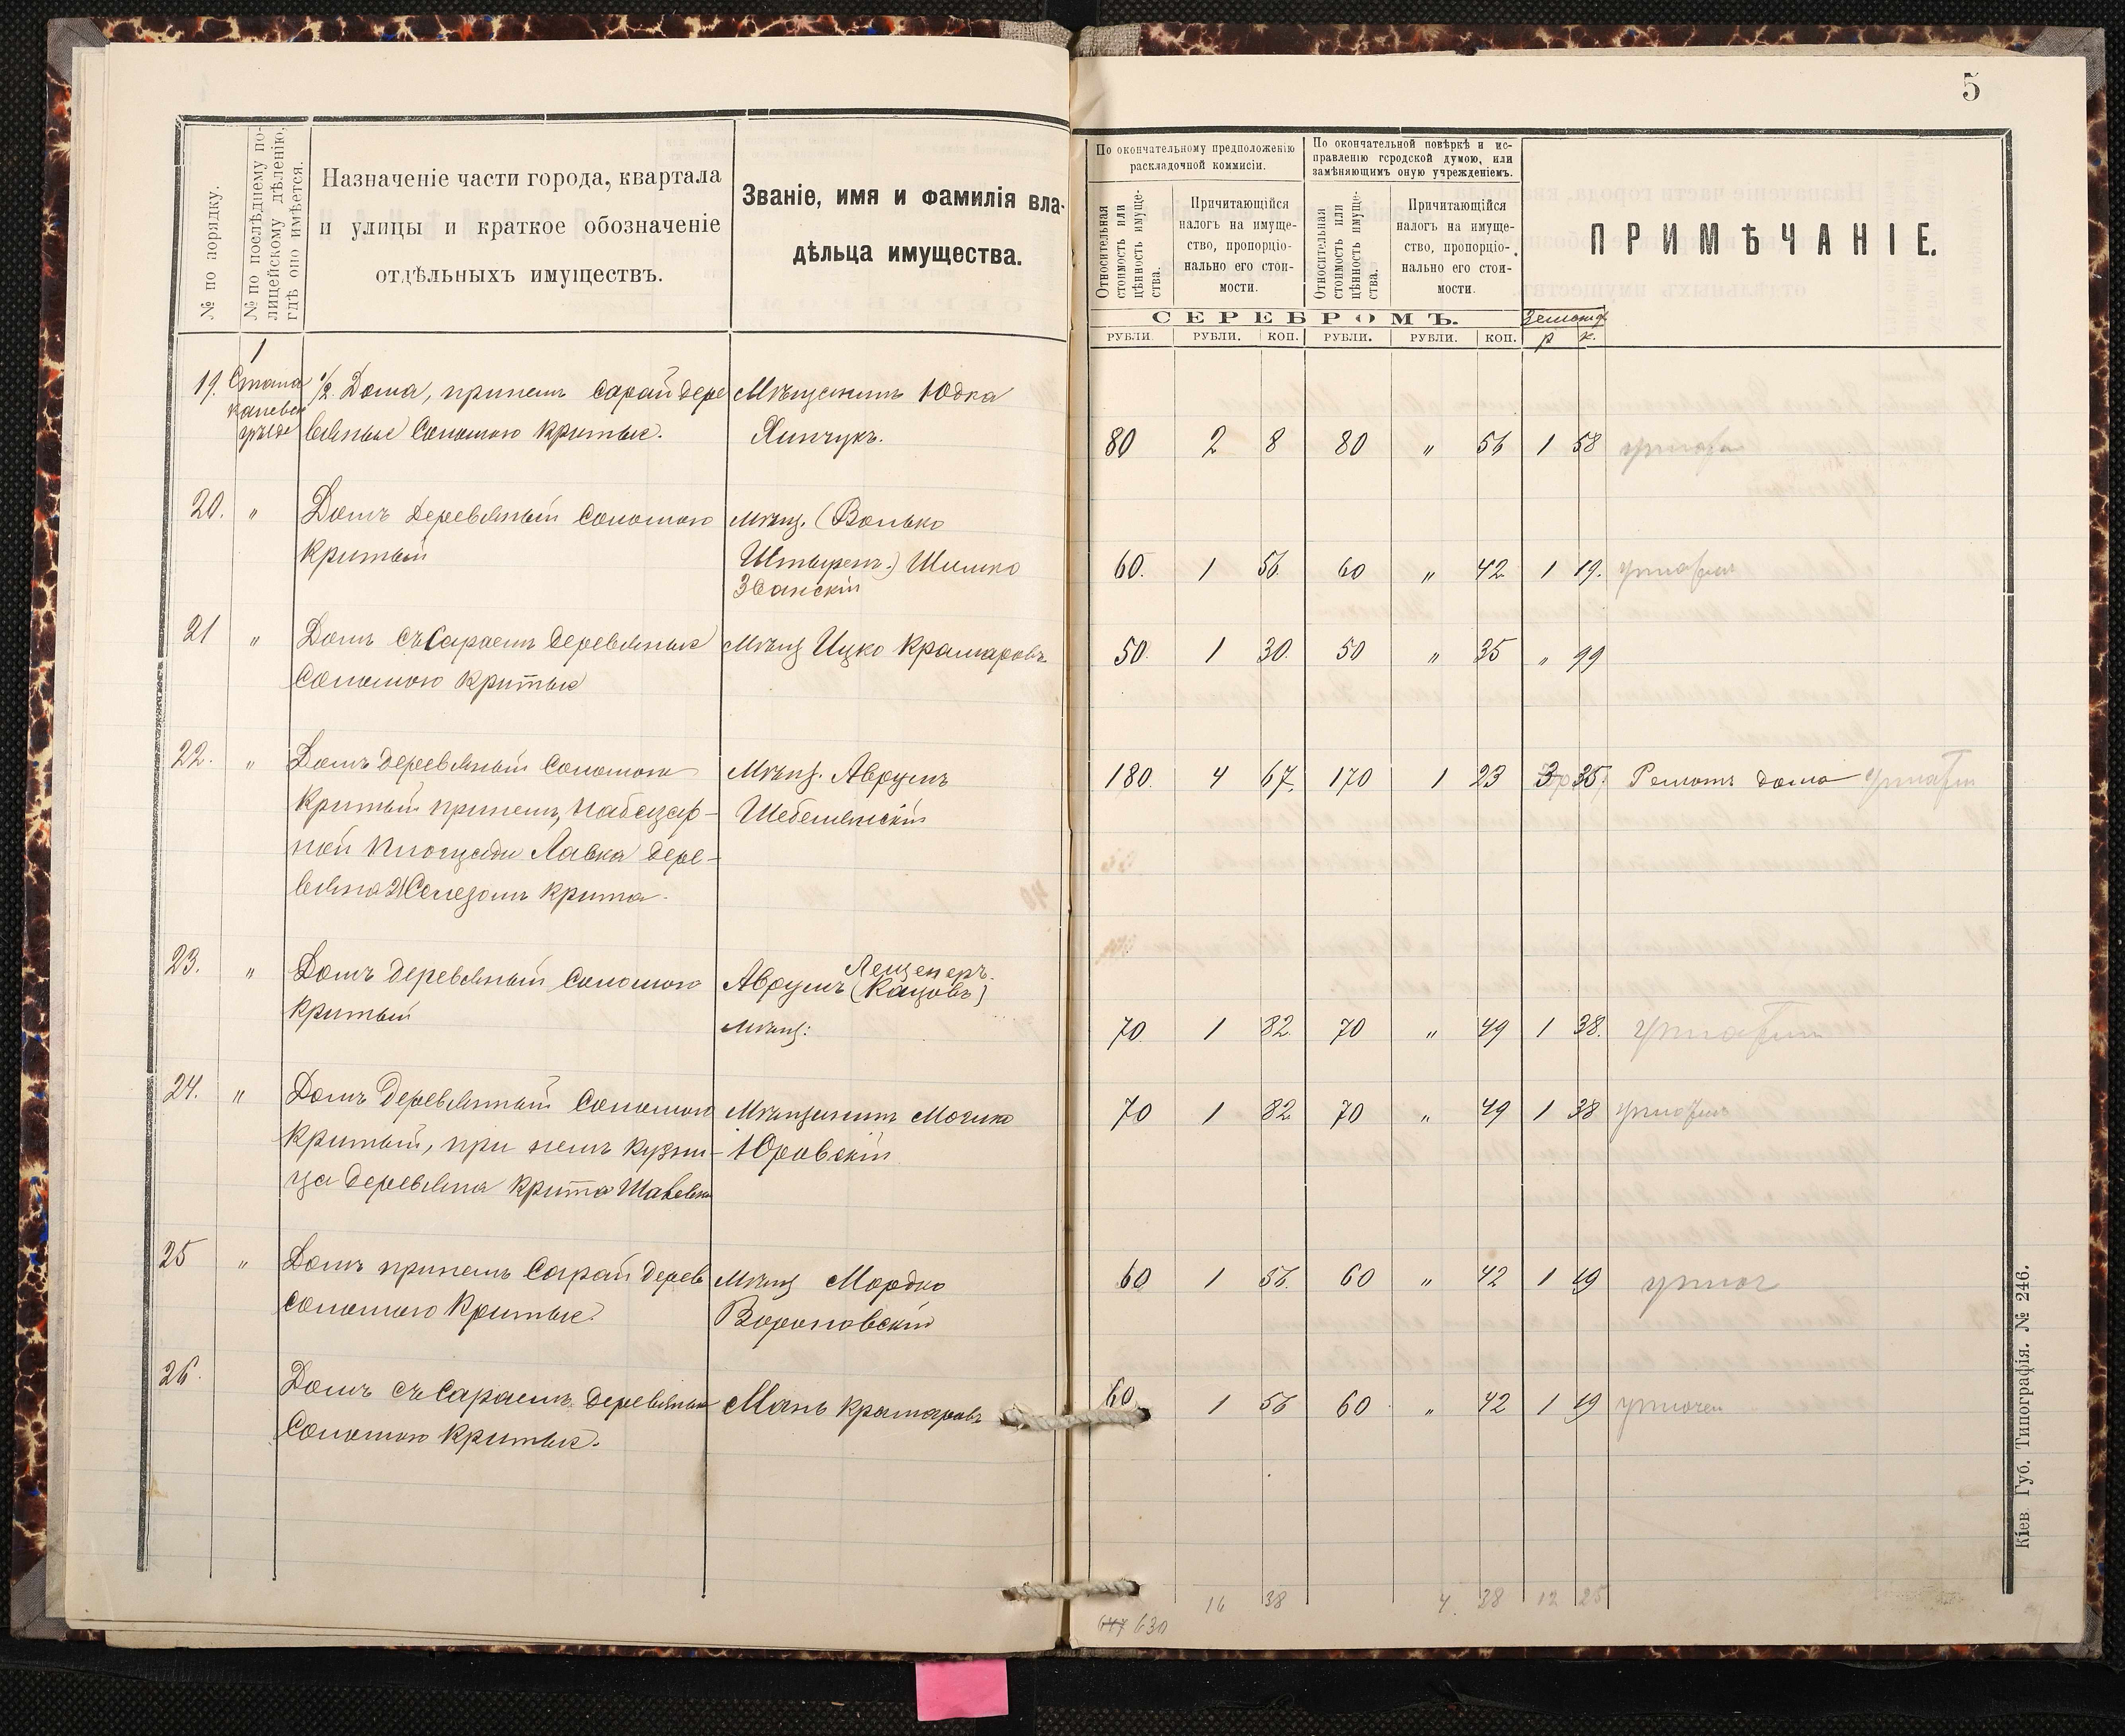 5
№ по порядку.
№ по послѣднему по-
лицейскому дѣленію,
гдѣ оно имѣется.
Назначеніе части города, квартала
и улицы и краткое обозначеніе
отдѣльныхъ имуществъ.
Званіе, имя и фамилія вла-
дѣльца имущества.
По окончательному предположенію
раскладочной коммисіи.
По окончательной повѣркѣ и ис-
правленію городской думою, или
замѣняющимъ оную учрежденіемъ.
Относительная
стоимость или
цѣнность имуще-
ства.
Причитающійся
налогъ на имуще-
ство, пропорціо-
нально его стои-
мости.
Относительная
стоимость или
цѣнность имуще-
ства.
Причитающійся
налогъ на имуще-
ство, пропорціо-
нально его стои-
мости.
ПРИМѢЧАНІЕ.
СЕРЕБРОМЪ.
РУБЛИ. РУБЛИ. КОП. РУБЛИ. РУБЛИ. КОП. р к.
1
19. 1/2 Дома, принемъ Сарай дере Мѣщанинъ Юдка
вянные Соломою Крытые. Хинчукъ.
80 2 8 80 " 56 1 58
20. " Домъ деревянный Соломою мѣщ. (Волько
Крытый Шмилько
Званскій
60. 1 56 60 " 42 1 19.
21 " Домъ съ Сараемъ деревянные Мѣщ Ицко Крамаровъ
Соломою Крытые
50. 1 30. 50 " 35 " 99
22. " Домъ деревянный Соломою Мѣщ. Аврумъ
Крытый принемъ, набазар-
ной площади Лавка дере-
вянна Желѣзомъ крыта.
180. 4 67. 170 1 23 3 35. Ремонтъ дома
23. " Домъ деревянный Соломою Аврумъ (Кацовъ) Лещенеръ.
Крытый мѣщ:
70 1 82. 70 " 49 1 38.
24. " Домъ деревянный Соломою Мѣщанинъ Мошко
Крытый, при немъ кузни- Юровскій
ца деревянна крыта
70 1 82 70 " 49 1 38
25 " Домъ принемъ Сарай дерев Мѣщ Мордко
Соломою Крытые. Вороновскій
60 1 56. 60 " 42 1 19
26. Домъ съ Сараемъ деревянные Крамаровъ
Соломою Крытые.
60 1 56 60 " 42 1 19
630 16 38 4 38 12 25
Кіев. Губ. Типографія. № 246.